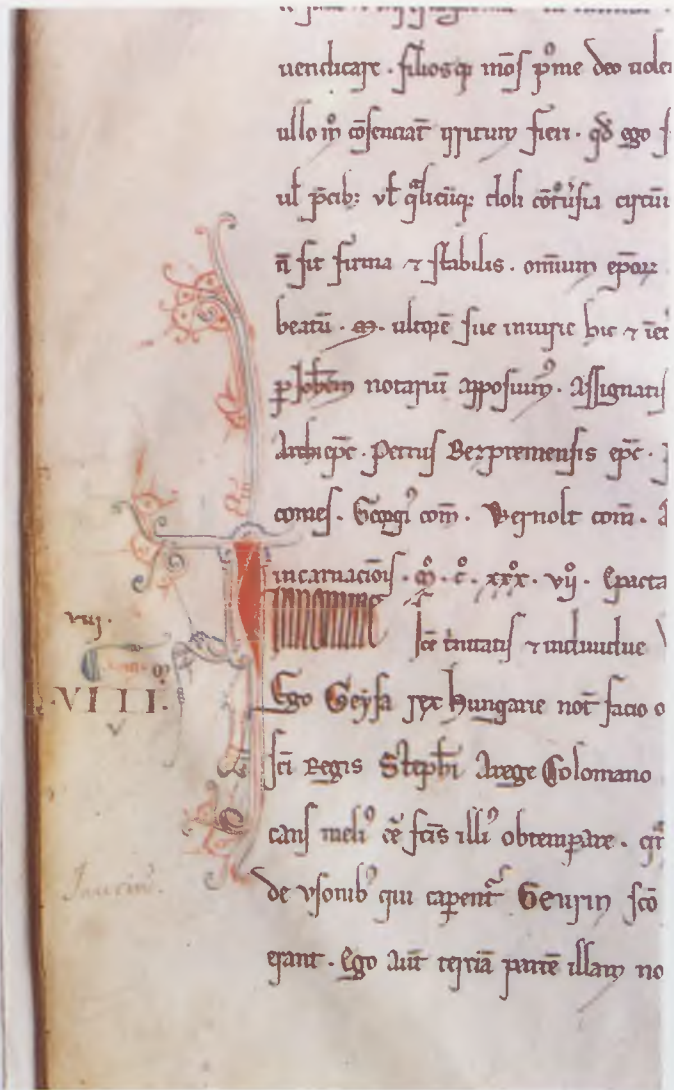 uendicare . filiosq; mōs p̄me deo uolen
ullo m̊ cōsenciāt irritum fieri . qd̄ ego f
ul̄ p̄cib; vl̄ q̄licūq; doli cōt̊ūsia circūu
n̄ sit firma ⁊ stabilis . omium ep̄oꝝ
beatū . m . ultorē sue iniurie hic ⁊ iēt
ꝑ Joh̄em notariū apposuim⁹ . Assignatis
Archiep̄c . Petrus Bezpremensis ep̄c .
comes . Georgi⁹ com̄ . Wernolt com̄ . A
incarnaciōis . m̊ . c̊ . xxx̊ . vij̊ . Epacta
In nomine sc̄e t̄nitatis ⁊ indiuidue
viij .
. VIIII .
Ego Geysa rex hungarie not̄ facio o
sc̄i Regis Steph̄i Arege Colomano
cans meli⁹ ēē sc̄is illi⁹ obtemꝑare . q
de vsonib⁹ qui capent̄ Geurin sc̄o
Jaurin .
erant . Ego aūt terciā partē illam no